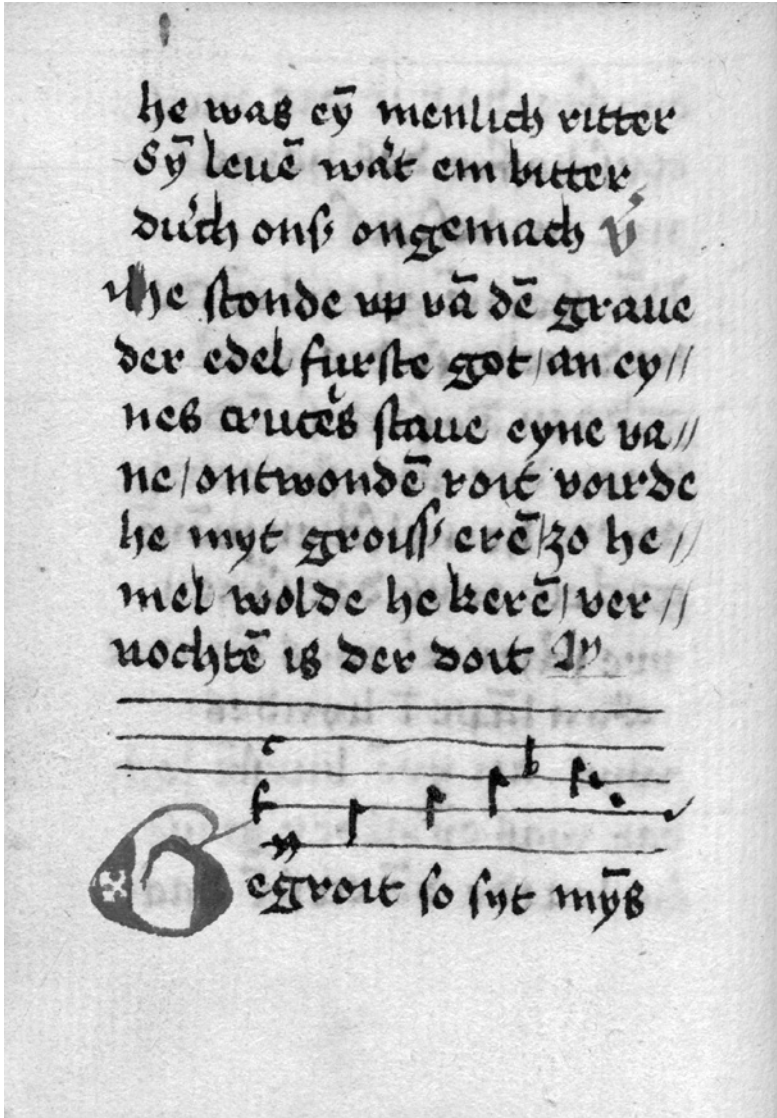 he was eȳ menlich ritter
Sȳ leuē wa't em bitter
du'ch ons ongemach v
he stonde vp vā dē graue
der edel furste got / an ey //
nes cruces staue eyne va //
ne / ontwondē roit voirde
he myt groiss erē / zo he //
mel wolde he kerē / ver //
nochtē is der doit
Gegroit so syt mȳs